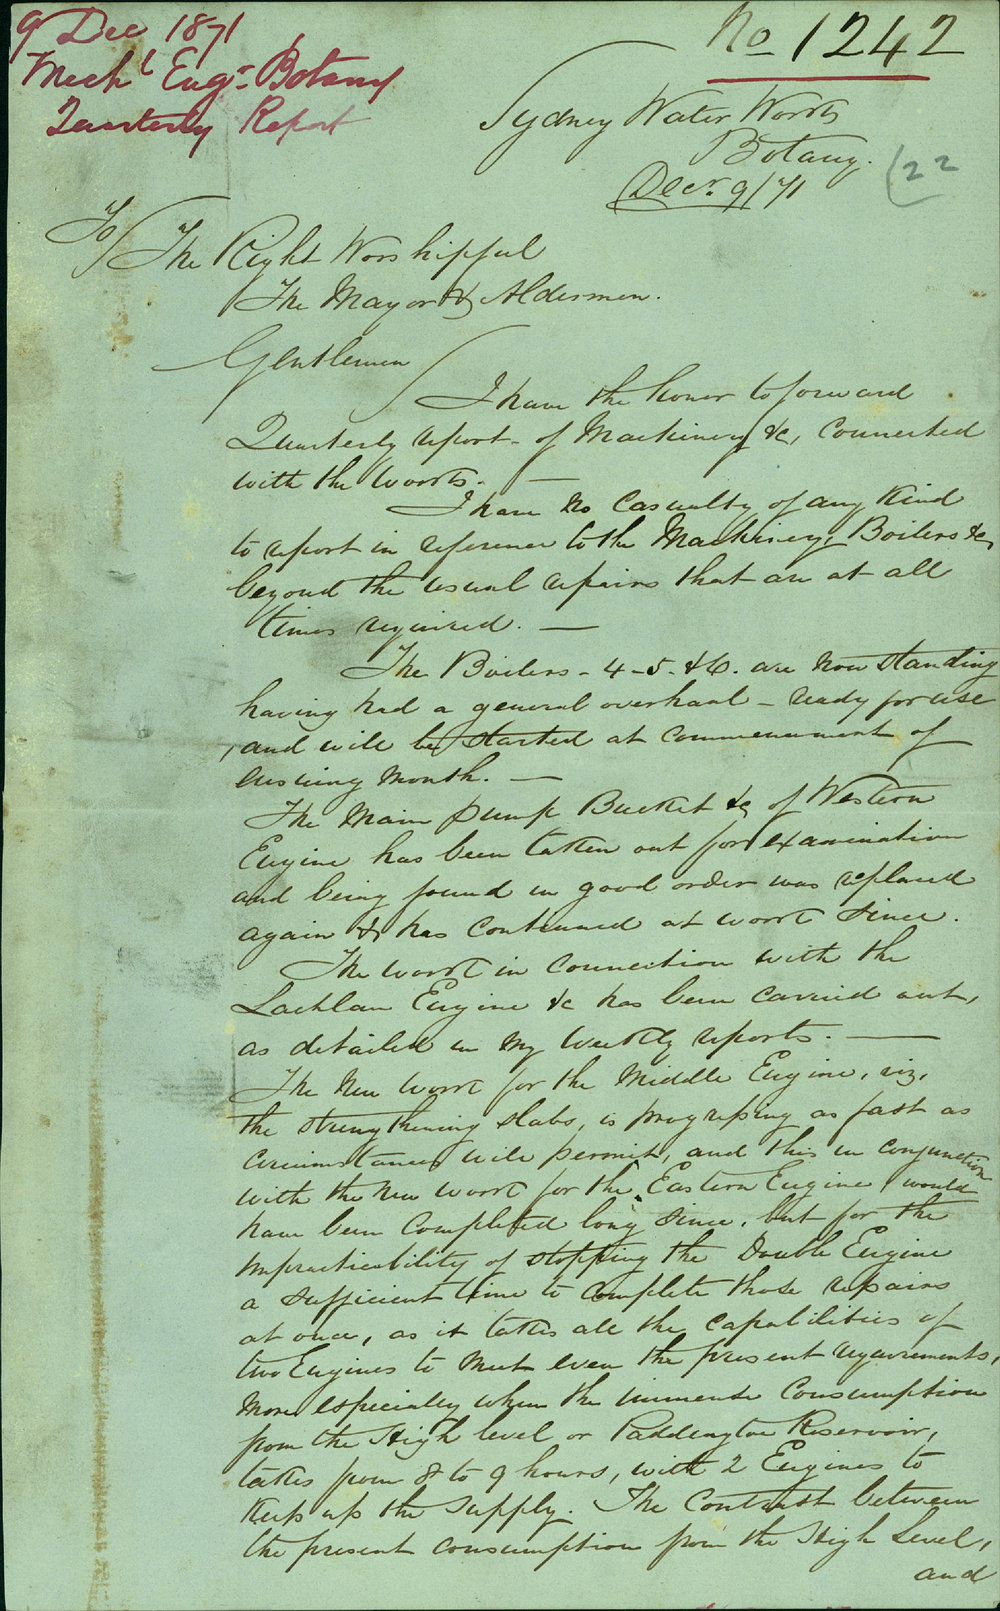 9 Dec 1871
Mechl Engr Botany
Quarterly Report
No 1242
Sydney Water Works
Botany.
Decr 9/71
(22
To/ The Right Worshipful
The Mayor & Aldermen.
Gentlemen
I have the honor to forward
Quarterly report of Machinery &c, connected
with the Works. —
I have no casualty of any kind
to report in reference to the Machinery, Boilers &c,
beyond the usual repairs that are at all
times required. —
The Boilers - 4 - 5 - & 6. are now standing
having had a general overhaul - ready for use
and will be started at commencement of
ensuing month. —
The Main pump Bucket &c of Western
Engine has been taken out for examination
and being found in good order was replaced
again & has continued at work since.
The work in connection with the
Lachlan Engine &c has been carried out,
as detailed in my weekly reports. —
The New work for the Middle Engine, viz,
the strengthening slabs, is progressing as fast as
circumstances will permit, and this in conjunction
with the New work for the Eastern Engine would
have been completed long since, but for the
impracticability of stopping the Double Engine
a sufficient time to complete those repairs
at once, as it takes all the capabilities of
two Engines to meet even the present requirements,
more especially when the immense consumption
from the High level or Paddington Reservoir,
takes from 8 to 9 hours, with 2 Engines to
keep up the supply. The Contrast between
the present consumption from the High Level,
and